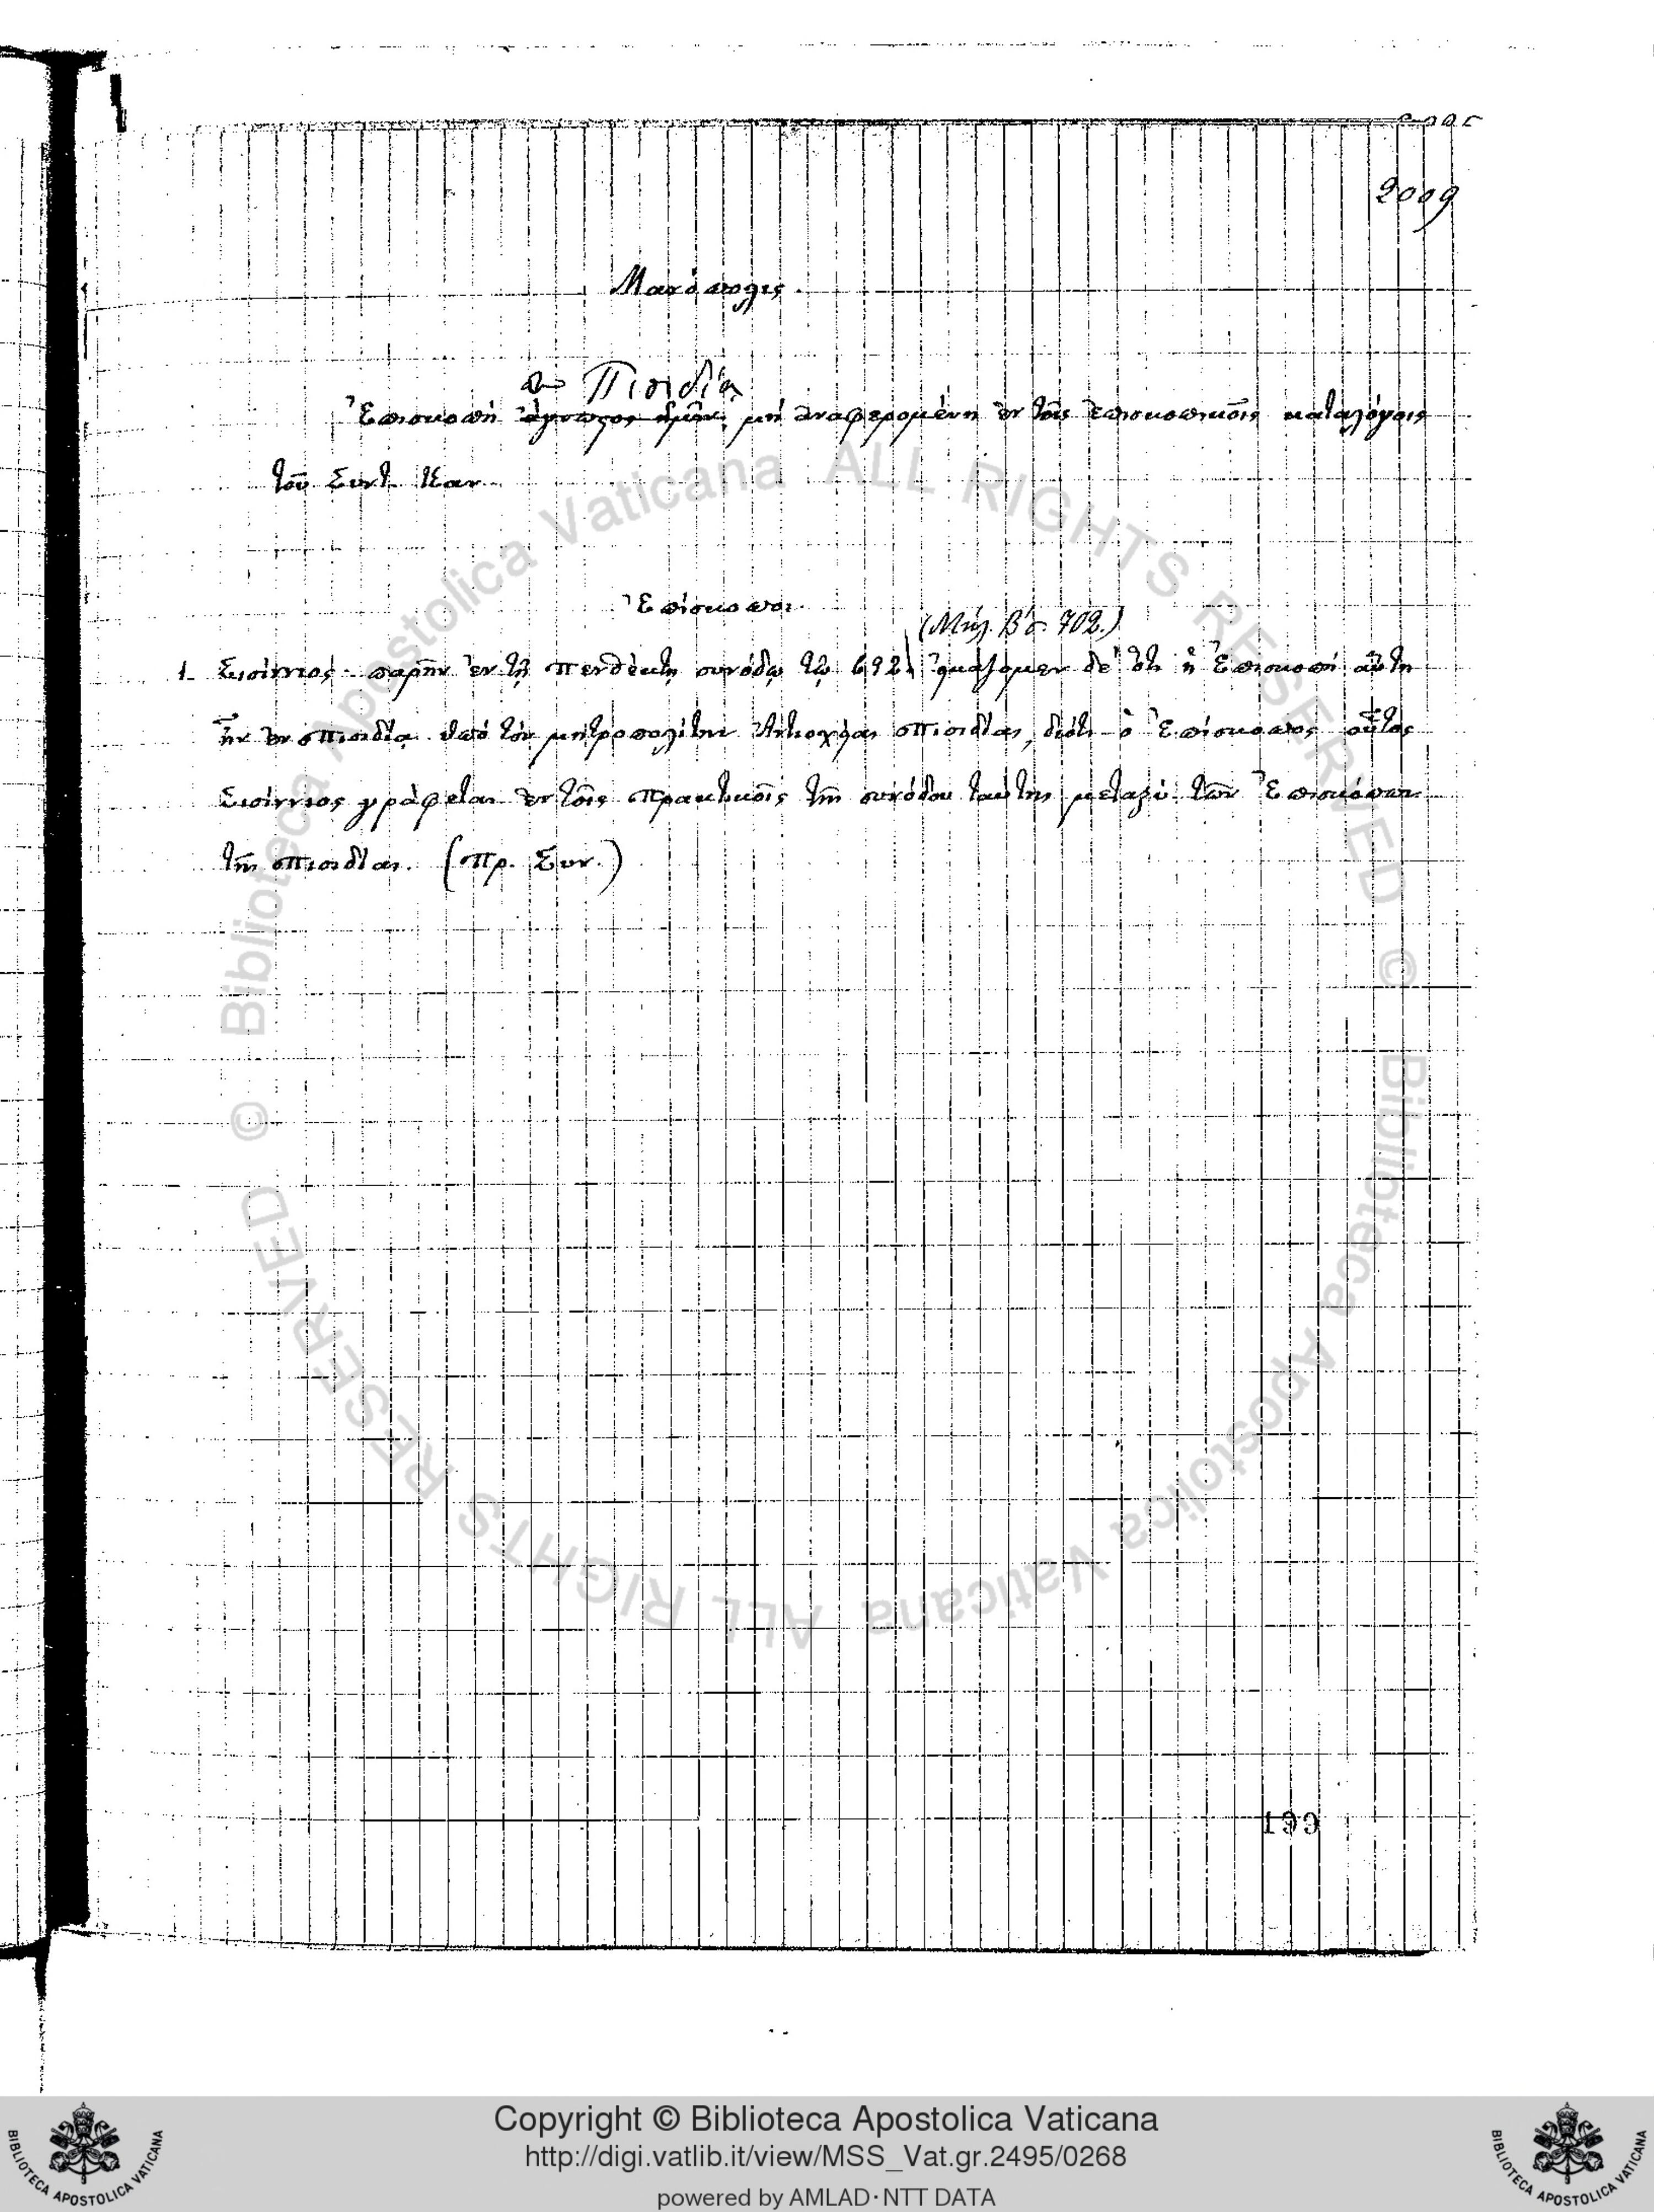 2009
Μανόπολις.
ἐν Πισιδίᾳ
Ἐπισκοπὴ ἄγνωστος ἡμῖν, μὴ ἀναφερομένη ἐν τοῖς ἐπισκοπικοῖς καταλόγοις
τοῦ Συντ. Καν.
Ἐπίσκοποι.
(Μηλ. Β΄ σ. 702.)
1. Σισίννιος· παρῆν ἐν τῇ Πενθέκτῃ συνόδῳ τῷ 692. εἰκάζομεν δὲ ὅτι ἡ Ἐπισκοπὴ αὕτη
ἦν ἐν Πισιδίᾳ ὑπὸ τὸν μητροπολίτην Ἀντιοχείας Πισιδίας, διότι ὁ Ἐπίσκοπος οὗτος
Σισίννιος γράφεται ἐν τοῖς Πρακτικοῖς τῆς συνόδου ταύτης μεταξὺ τῶν Ἐπισκόπων
τῆς Πισιδίας. (Πρ. Συν.)
199
© Biblioteca Apostolica Vaticana ALL RIGHTS RESERVED
© Biblioteca Apostolica Vaticana ALL RIGHTS RESERVED
Copyright © Biblioteca Apostolica Vaticana
http://digi.vatlib.it/view/MSS_Vat.gr.2495/0268
powered by AMLAD·NTT DATA
BIBLIOTECA APOSTOLICA VATICANA
BIBLIOTECA APOSTOLICA VATICANA